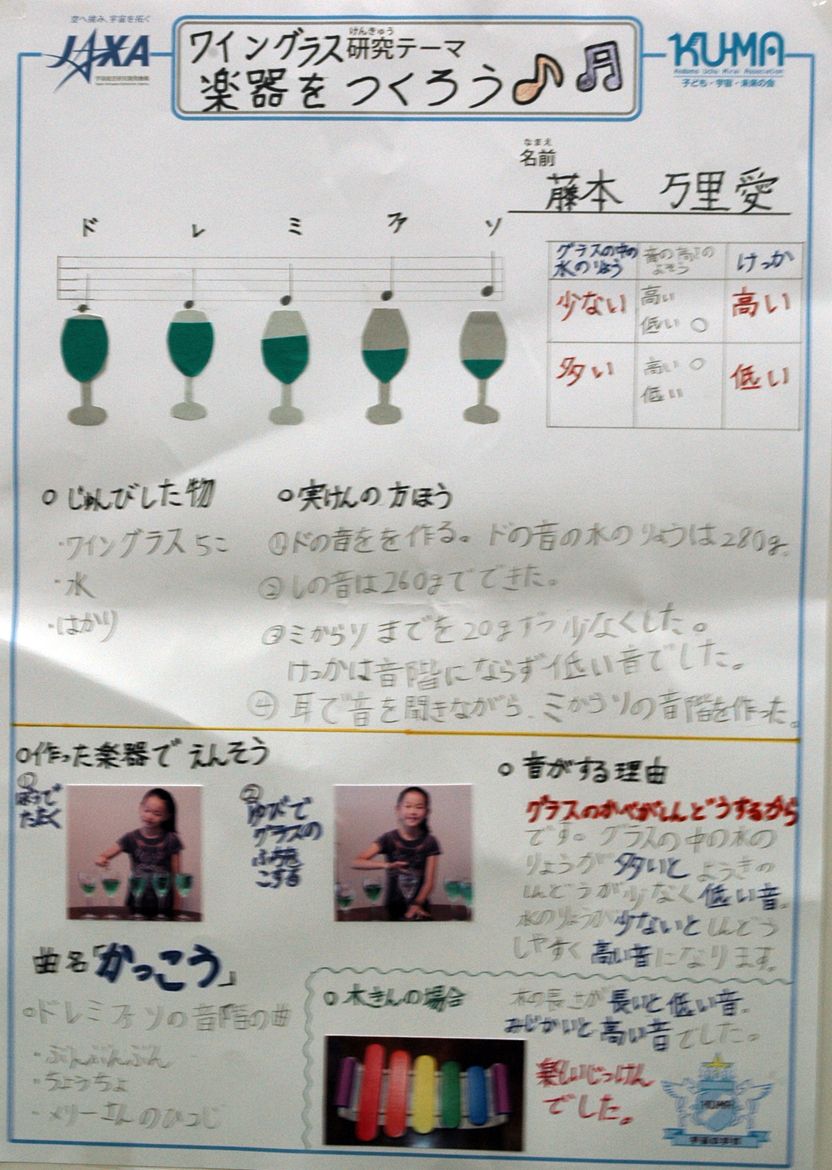 空へ挑み、宇宙を拓く
JAXA
宇宙航空研究開発機構
ワイングラス研究テーマ
けんきゅう
楽器をつくろう
KU-MA
Kodomo Uchu Mirai Association
子ども・宇宙・未来の会
なまえ
名前
藤本 万里愛
ド レ ミ ファ ソ
グラスの中の水のりょう
音の高さのよそう
けっか
少ない
高い
低い ○
高い
多い
高い ○
低い
低い
○じゅんびした物
・ワイングラス5こ
・水
・はかり
○実けんの方ほう
①ドの音をを作る。ドの音の水のりょうは280g。
②レの音は260gまでできた。
③ミからソまでを20gずつ少なくした。
けっかは音階にならず低い音でした。
④耳で音を聞きながら、ミからソの音階を作った。
○作った楽器でえんそう
①
ぼうで
たたく
②
ゆびで
グラスの
ふちを
こする
曲名「かっこう」
○ドレミファソの音階の曲
・ぶんぶんぶん
・ちょうちょ
・メリーさんのひつじ
○音がする理由
グラスのかべがしんどうするから
です。グラスの中の水の
りょうが多いとようきの
しんどうが少なく低い音。
水のりょうが少ないとしんどう
しやすく高い音になります。
○木きんの場合
木の長さが長いと低い音。
みじかいと高い音でした。
楽しいじっけん
でした。
KU-MA
宇宙の学校